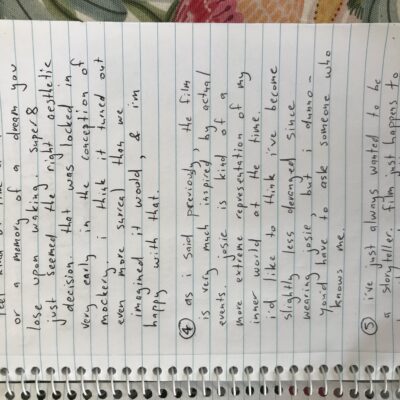 feel kind of
or a memory of a dream you
lose upon waking. super 8
just seemed the right aesthetic
decision that was locked in
very early in the conception of
mockery. i think it turned out
even more surreal than we
imagined it would, & i'm
happy with that.
④ as i said previously, the film
is very much inspired by actual
events. josie is kind of a
more extreme representation of my
inner world at the time.
i'd like to think i've become
slightly less deranged since
wearing josie, but i dunno -
you'd have to ask someone who
knows me.
⑤ i've just always wanted to be
a storyteller. film just happens to